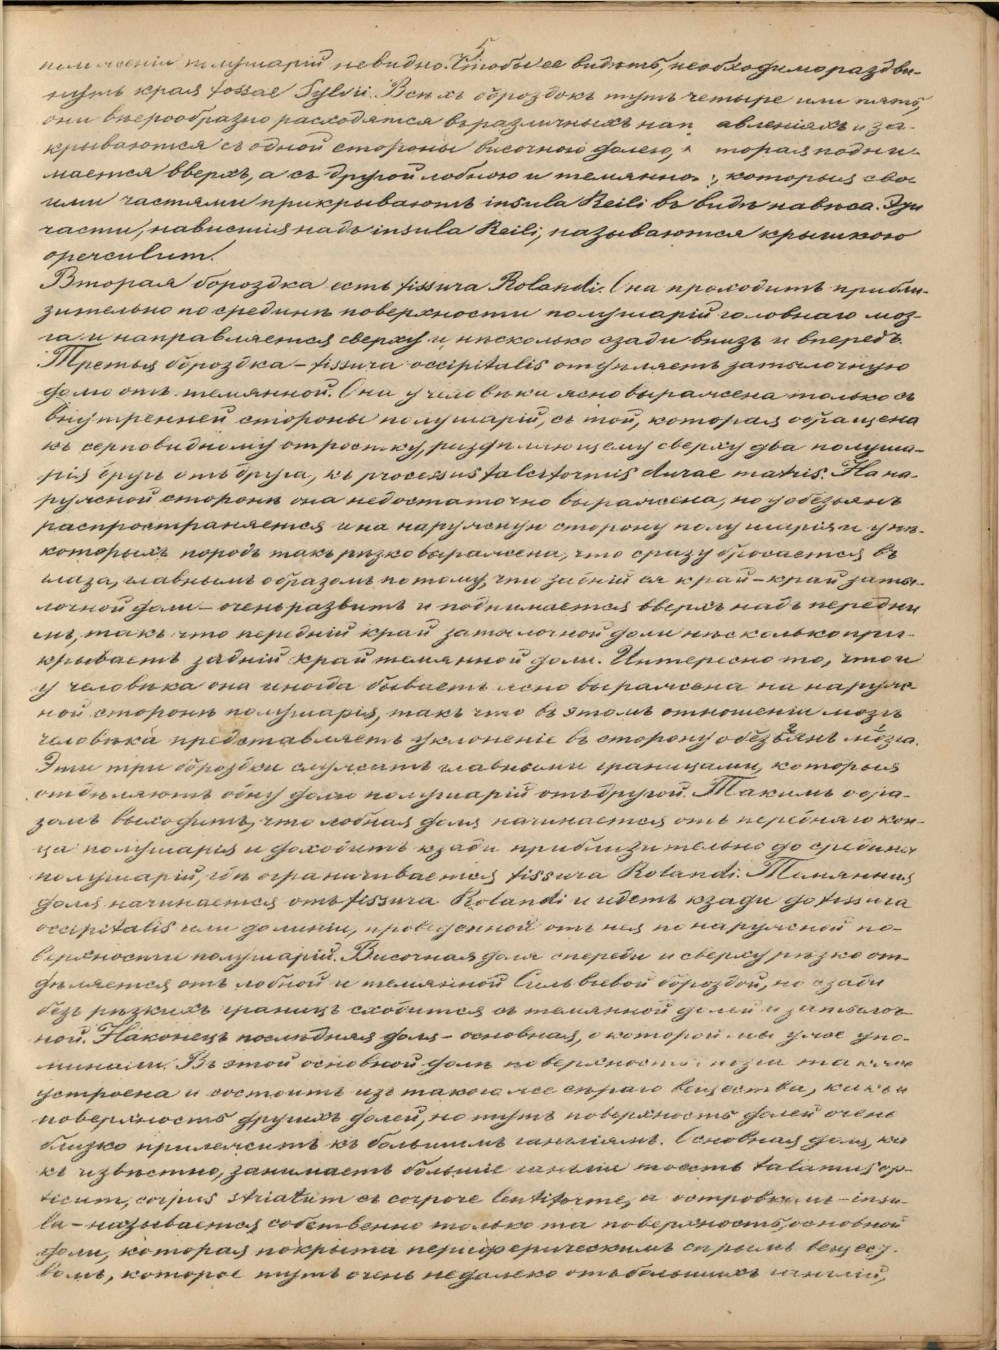 5
положенія полушарій невидно. Чтобы ее видѣть, необходимо раздви-
нуть края fossae Sylvii. Всѣхъ бороздокъ тутъ четыре или пять,
они вѣерообразно расходятся въ различныхъ нап авленіяхъ и за-
крываются съ одной стороны височною долею, к торая подни-
мается вверхъ, а съ другой лобною и темянно , которыя сво-
ими частями прикрываютъ insula Reili въ видѣ навѣса. Эти
части, нависшія надъ insula Reili, называются крышкою
operculum.
Вторая бороздка есть fissura Rolandi. Она проходитъ прибли-
зительно по срединѣ поверхности полушарій головнаго моз-
га и направляется сверху и нѣсколько сзади внизъ и впередъ.
Третья бороздка – fissura occipitalis отдѣляетъ затылочную
долю отъ темянной. Она у человѣка ясно выражена только съ
внутренней стороны полушарій, съ той, которая обращена
къ серповидному отростку, раздѣляющему сверху два полуша-
рія другъ отъ друга, къ processus falciformis durae matris. На на-
ружной сторонѣ она недостаточно выражена, но у обезьянъ
распространяется и на наружную сторону полушарія и у нѣ-
которыхъ породъ такъ рѣзко выражена, что сразу бросается въ
глаза, главнымъ образомъ потому, что задній ея край – край заты-
лочной доли – очень развитъ и поднимается вверхъ надъ передни
мъ, такъ что передній край затылочной доли нѣсколько при-
крываетъ задній край темянной доли. Интересно то, что и
у человѣка она иногда бываетъ ясно выражена на наруж-
ной сторонѣ полушарія, такъ что въ этомъ отношеніи мозгъ
человѣка представляетъ уклоненіе въ сторону обезьянъ мозга.
Эти три бороздки служатъ главными границами, которыя
отдѣляютъ одну долю полушарій отъ другой. Такимъ обра-
зомъ выходитъ, что лобная доля начинается отъ передняго кон-
ца полушарія и доходитъ кзади приблизительно до средины
полушарій, гдѣ ограничивается fissura Rolandi. Темянная
доля начинается отъ fissura Rolandi и идетъ кзади до fissura
occipitalis или до линіи, проведенной отъ нея по наружной по-
верхности полушарій. Височная доля спереди и сверху рѣзко от-
дѣляется отъ лобной и темянной Сильвьевой бороздой, но сзади
безъ рѣзкихъ границъ сходится съ темянной долей и затылоч-
ной. Наконецъ послѣдняя доля – основная, о которой мы уже упо-
минали. Въ этой основной долѣ поверхность мозга также
устроена и состоитъ изъ такого же сѣраго вещества, какъ и
поверхность другихъ долей, но тутъ поверхность долей очень
близко прилежитъ къ большимъ гангліямъ. Основная доля, ка
къ извѣстно, занимаетъ большіе гангліи тоесть talamus op-
ticum, corpus striatum съ corpore lentiforme, а островкомъ – insu-
la – называется собственно только та поверхность основной
доли, которая покрыта периферическимъ сѣрымъ вещест-
вомъ, которое тутъ очень недалеко отъ большихъ ганглій,